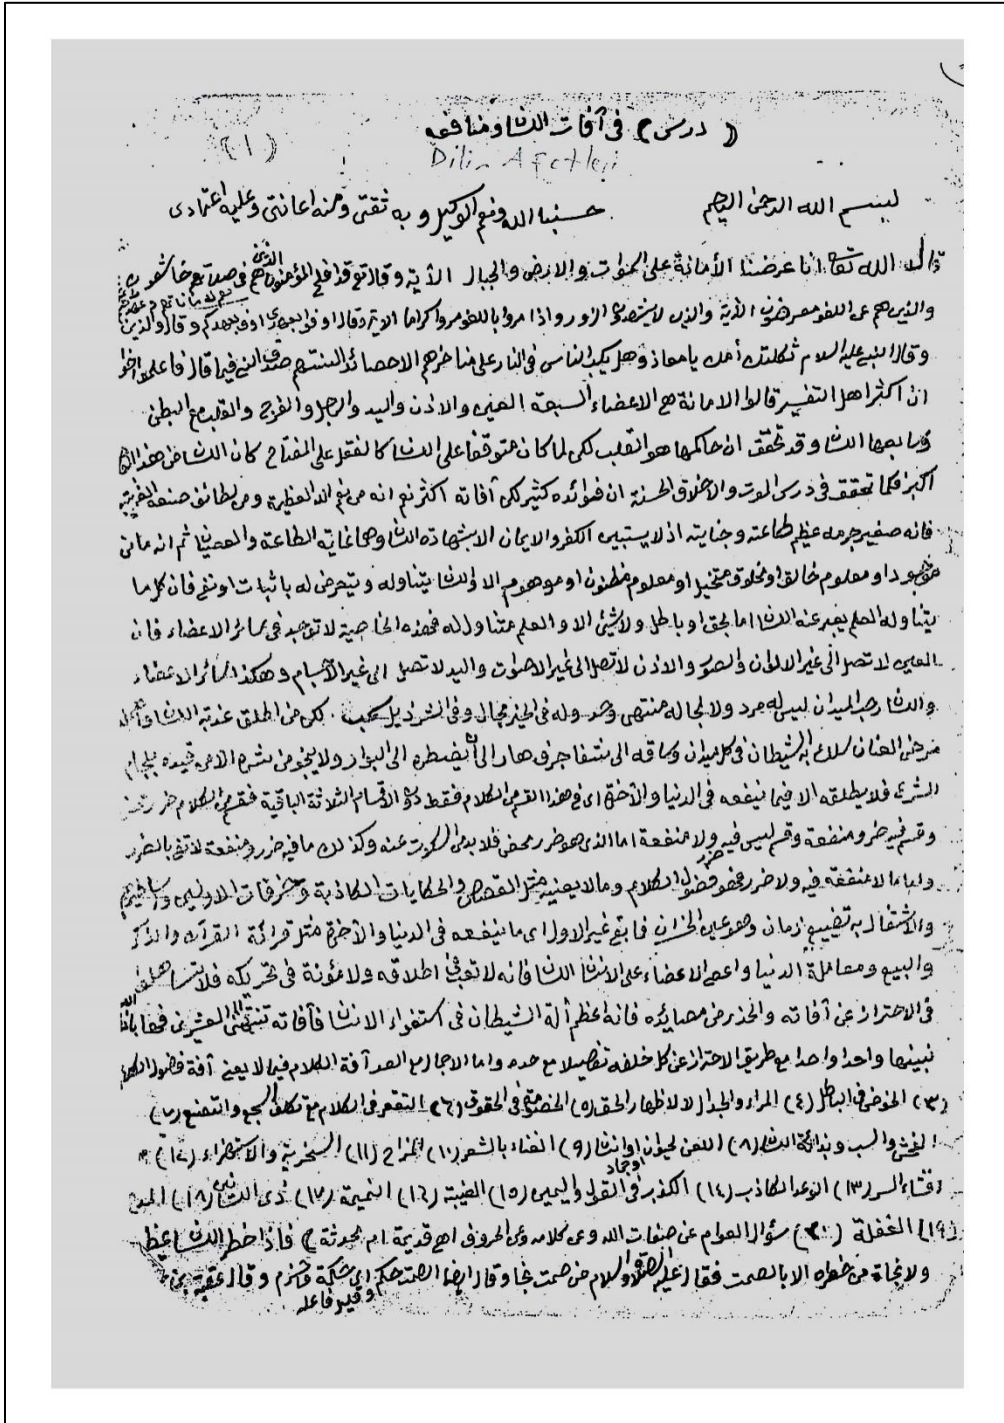 ( درس ) فى آفات اللسان ومنافعه
(١)
Dilin Afetleri
بسم الله الرحمن الرحيم حسبنا الله ونعم الوكيل وبه ثقتى ومنه اعانتى وعليه اعتمادى
قال الله تعالى انا عرضنا الأمانة على السموات والارض والجبال الأية وقال تع قد افلح المؤمنون الذين هم فى صلاتهم خاشعون
والذين هم عن اللغو معرضون الأية والذين لا يشهدون الزور واذا مروا باللغو مروا كراما الاية وقال اوفوا بعهدى اوف بعهدكم وقال والذين
وقال النبى عليه السلام ثكلتك أمك يا معاذ وهل يكب الناس فى النار على مناخرهم الا حصائد السنتهم صدق النبى فيما قال فاعلموا
ان اكثر اهل التفسير قالوا الامانة هى الاعضاء السبعة العين والاذن واليد والرجل والفرج والقلب مع البطن
وسابعها اللسان وقد تحقق ان حاكمها هو القلب لكن لما كان متوقفا على اللسان كالقفل على المفتاح كان اللسان من هذه
اكبر فكما تحقق فى درس الموت والاخلاق الحسنة ان فوائده كثير لكن آفاته اكثر نعم انه من نعم الله العظيمة ومن لطائف صنعه الغريبة
فانه صغير جرمه عظيم طاعته وجنايته اذ لا يستبين الكفر والايمان الا بشهادة اللسان وهما غاية الطاعة والعصيان ثم انه ما من
موجود او معلوم خالق او مخلوق متخيل او معلوم مظنون او موهوم الا واللسان يتناوله ويتعرض له باثبات او نفى فان كل ما
يتناوله العلم يعبر عنه اللسان اما بحق او باطل ولا شيئ الا والعلم متناول له فهذه الخاصية لا توجد فى سائر الاعضاء فان
العين لا تصل الى غير الالوان والصور والاذن لا تصل الى غير الاصوات واليد لا تصل الى غير الأجسام وهكذا سائر الاعضاء
واللسان رحب الميدان ليس له مرد ولا لمجاله منتهى وحد وله فى الخير مجال وفى الشر ذيل سحب . لكن من اطلق عذبة اللسان
مرخى العنان سلك به الشيطان فى كل ميدان وساقه الى شفا جرف هار الى ان يضطره الى البوار ولا ينجو من شره الا من قيده بلجام
الشرع فلا يطلقه الا فيما ينفعه فى الدنيا والآخرة اى فى هذا القسم من الكلام فقط دون الأقسام الثلاثة الباقية فقسم من الكلام ضرر
وقسم فيه ضر ومنفعة وقسم ليس فيه ضرر ولا منفعة اما الذى هو ضرر محض فلا بد من السكوت عنه وكذلك ما فيه ضرر ومنفعة لا تفى بالضرر
واما ما لا منفعة فيه ولا ضرر فهو فضول الكلام وما لا يعنيه مثل القصص والحكايات الكاذبة وخرفات الاولين
والاشتغال به تضييع زمان وهو عين الخسران فما بقى غير الاول اى ما ينفعه فى الدنيا والآخرة مثل قرائة القرآن والذكر
والبيع ومعاملة الدنيا واعصى الاعضاء على الانسان اللسان فانه لا تعب فى اطلاقه ولا مؤنة فى تحريكه فلا تساهل
فى الاحتراز عن آفاته والحذر من مصائده فانه اعظم ألة الشيطان فى استغواء الانسان فآفاته تنتهى الى العشرين
نبينها واحدا واحدا مع طريق الاحتراز عن كل خلفه تفصيلا مع حده واما الاجمال مع العد آفة الكلام فيما لا يعنى آفة فضول الكلام
(٣) الخوض فى الباطل (٤) المراء والجدال لا لاظهار الحق (٥) الخصومة فى الحقوق (٦) التقعر فى الكلام مع تكلف السجع والتصنع (٧)
الفحش والسب وبذائة اللسان (٨) اللعن لحيوان او انسان او جماد (٩) الغناء بالشعر (١٠) المزاح (١١) السخرية والاستهزاء (١٢)
افشاء السر (١٣) الوعد الكاذب (١٤) الكذب فى القول واليمين (١٥) الغيبة (١٦) النميمة (١٧) ذى اللسانين (١٨) المدح
(١٩) الغفلة (٢٠) سؤال العوام عن صفات الله وعن كلامه وعن الحروف اهى قديمة ام محدثة ) فاذا خطر اللسان عظيم
ولا نجاة من خطره الا بالصمت فقال عليه الصلاة والسلام من صمت نجا وقال ايضا الصمت حكم اى حكمة وحزم وقال عقبة بن
وقليل فاعله